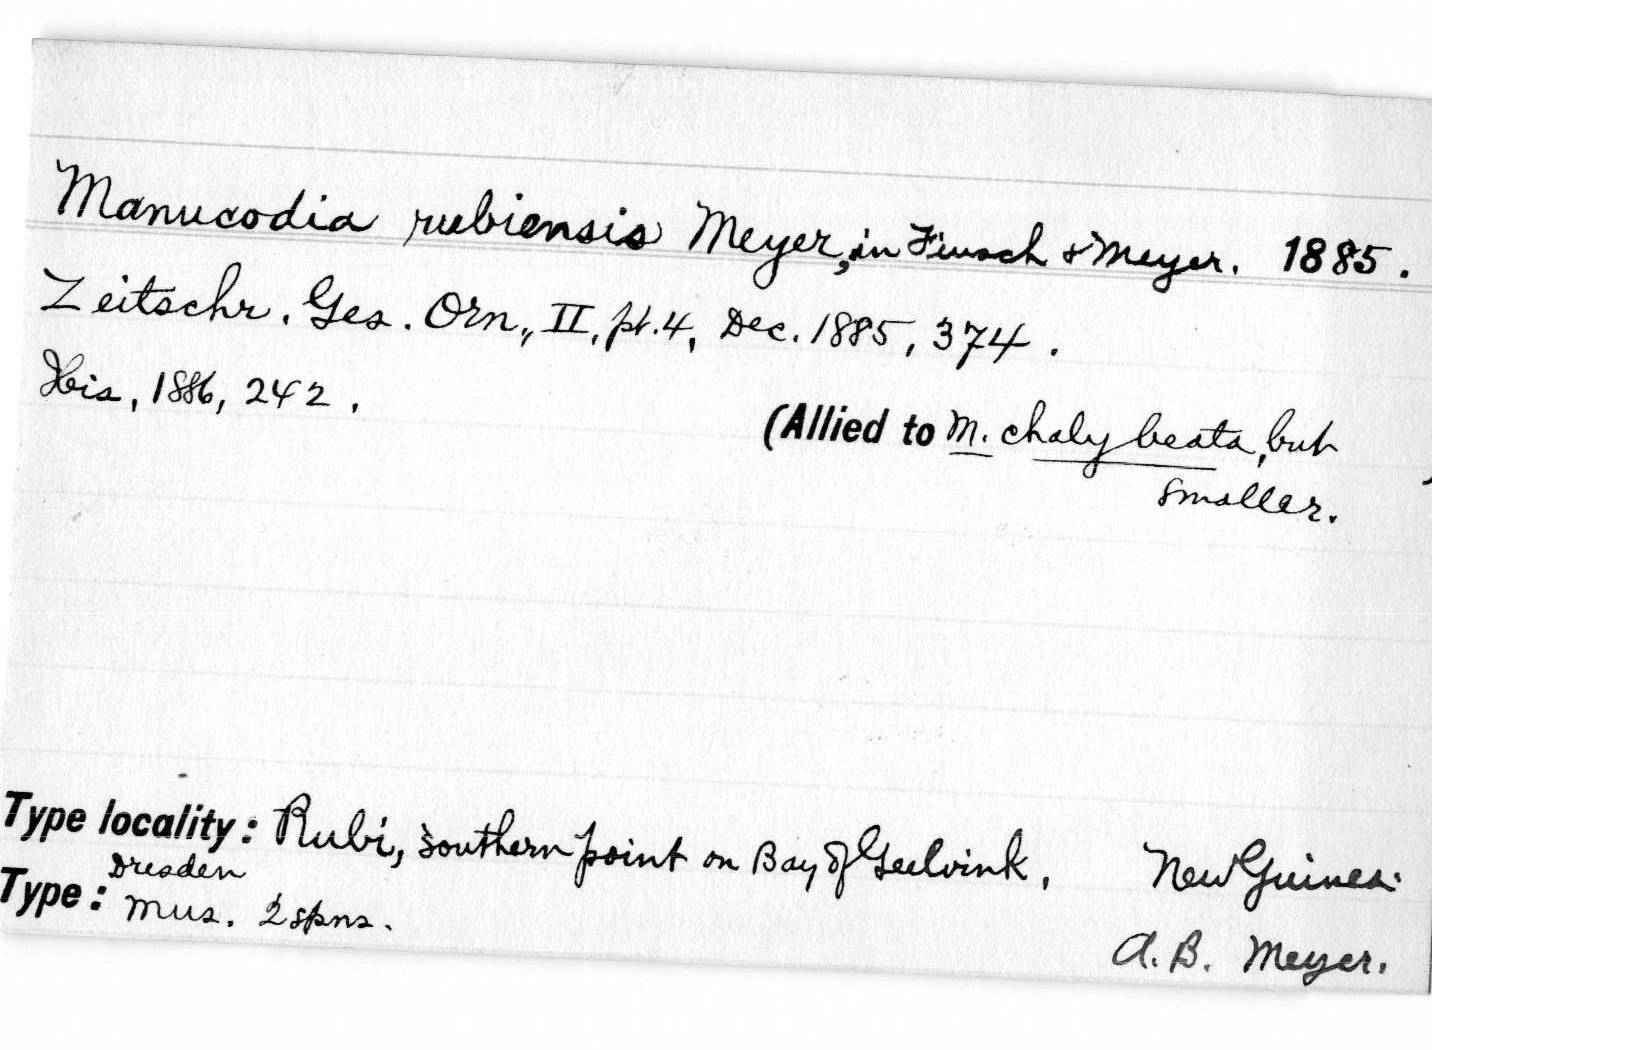 Manucodia rubiensis Meyer, in Finsch & Meyer. 1885.
Zeitschr. Ges. Orn., II, pt. 4, Dec. 1885, 374.
Ibis, 1886, 242.
(Allied to M. chalybeata, but
smaller.
Type locality: Rubi, southern point on Bay of Geelvink, New Guinea.
Dresden
Type: Mus. 2 spns.
A. B. Meyer.